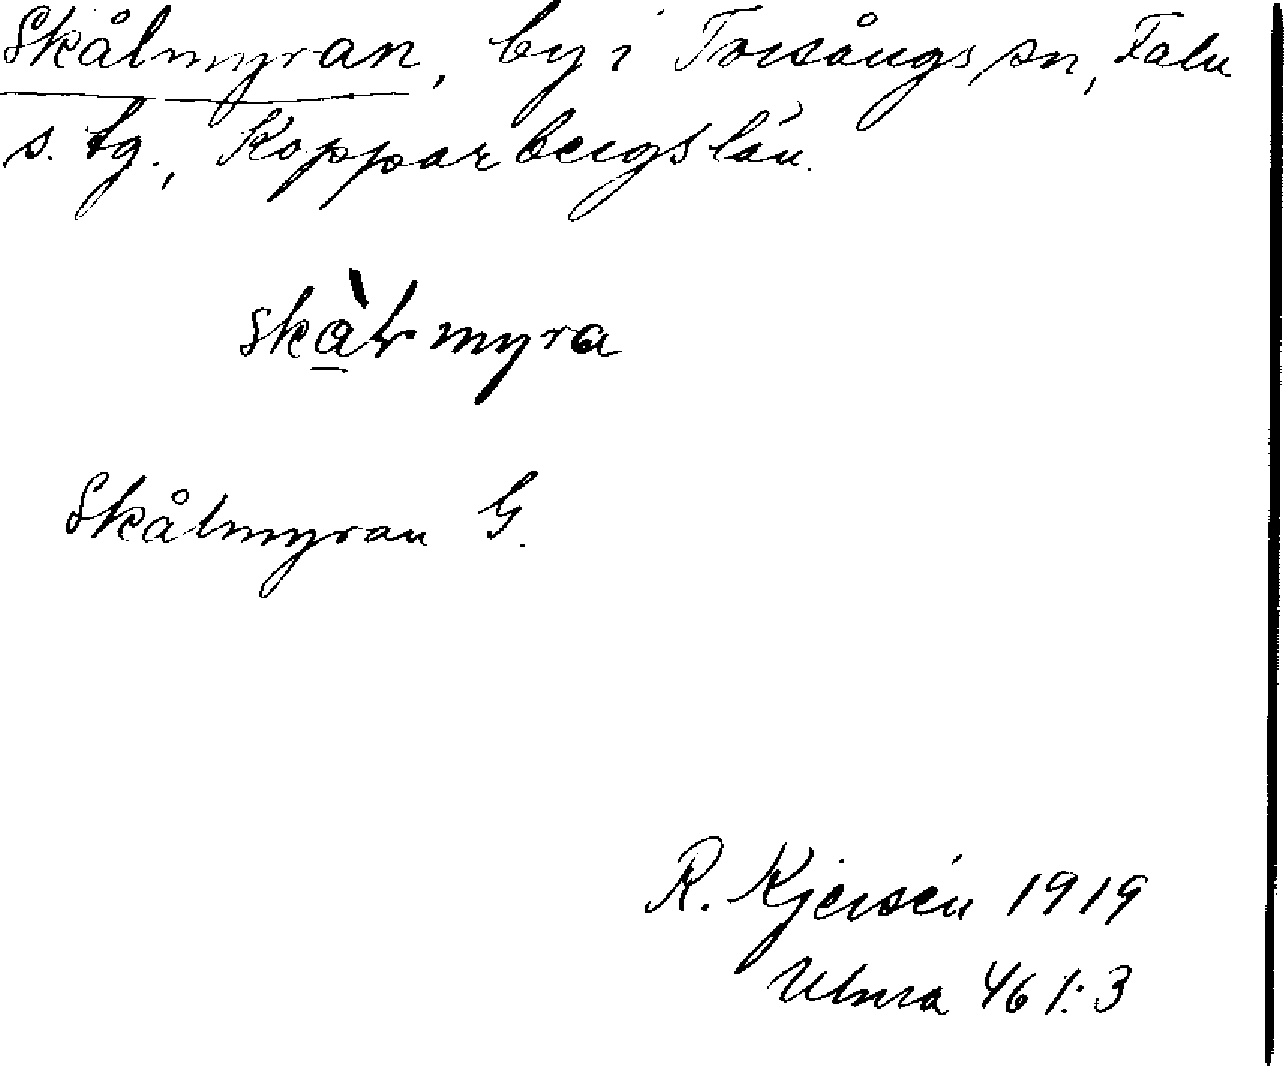 Skålmyran, by i Torsångs sn, Falu
s. tg., Kopparbergs län.
skàlmyra
Skålmyran G.
R. Kjersén 1919
Ulma 461:3